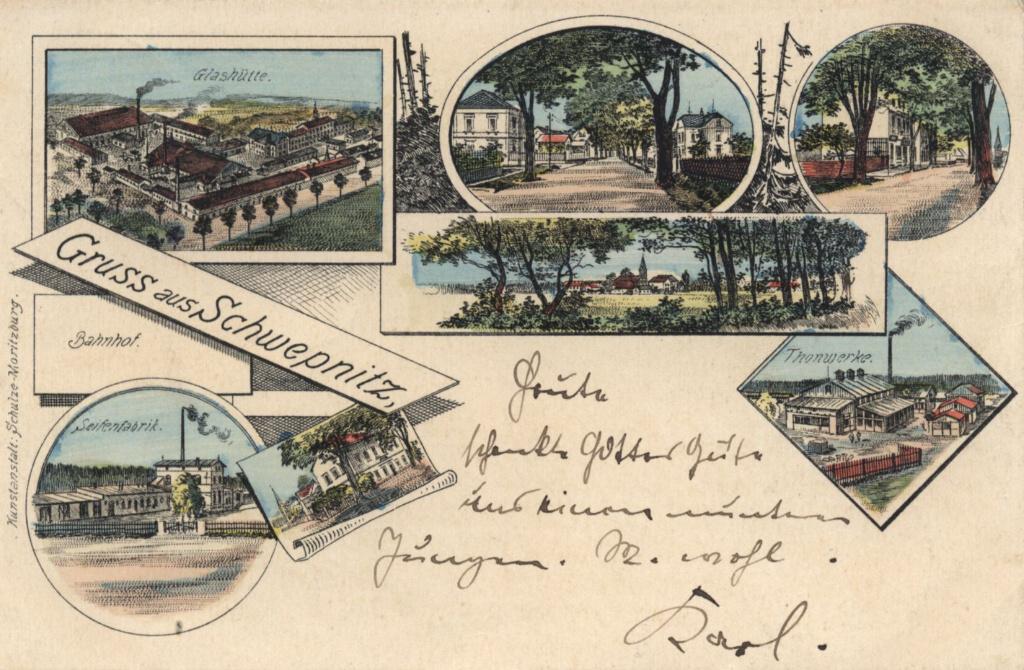 Glashütte.
Gruss aus Schwepnitz,
Bahnhof.
Thonwerke.
Seifenfabrik.
Kunstanstalt: Schulze-Moritzburg.
Heute
schenkte Gottes Güte
uns einen muntren
Jungen. M. wohl.
Karl.